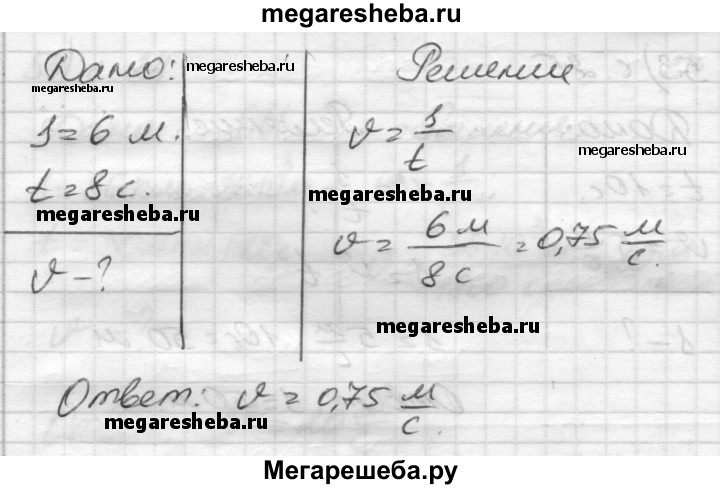 megaresheba.ru
Дано:
megaresheba.ru
megaresheba.ru
s = 6 м.
t = 8 с.
megaresheba.ru
v - ?
Решение
v = s/t
megaresheba.ru
megaresheba.ru
v = 6 м / 8 с = 0,75 м/с.
megaresheba.ru
Ответ: v = 0,75 м/с.
megaresheba.ru
Мегарешеба.ру